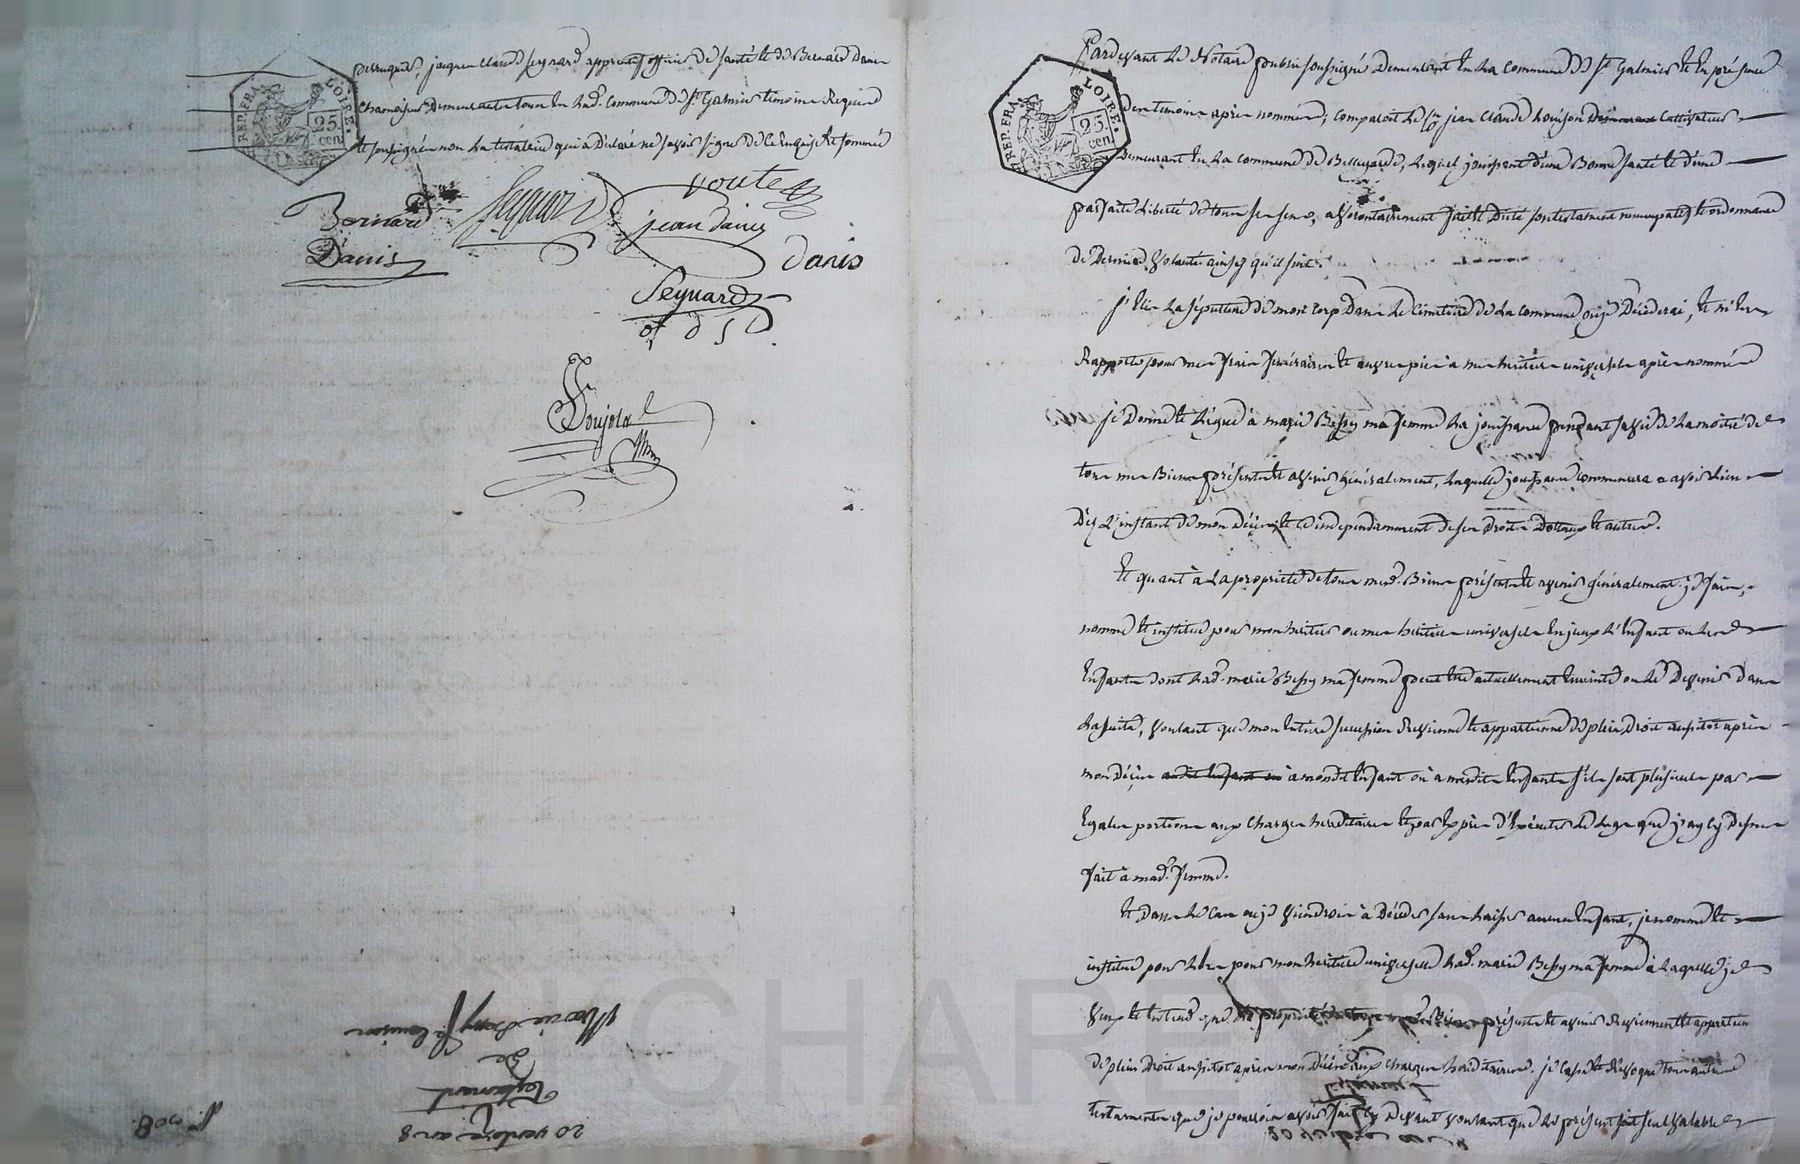 perruquier, jacque Claud Seynard apprentif officier de santé et de Bernard Danis
Chamoiseur Demeurants tous en lad. Commune de St Galmier temoins Requis
et soussignés non la testatrice qui a Déclaré ne savoir signer de ce Enquise et sommée
REP. FRA.
LOIRE.
25.
cen.
Bernard
Danis
Seynard
voute
jean danis
danis
Seynard
of d S
Boujot
Marie Bessy fe louison
de
Testament
20 ventose an 8
No 308.
Pardevant Le Notaire public soussigné Demeurant En La Commune de St Galmier Et En présence
Des temoins après nommés, Comparoit Le Sr jean Claude Louison Cultivateur
Demeurant En La Commune De Bellegarde, Lequel jouissant d'une Bonne santé Et d'une
parfaite Liberté de tous ses sens, a volontairement fait Et Dicté son testament nuncupatif Et ordonnance
de Derniere Volonté ainsy qu'il suit.
j'Elis La sépulture de mon Corp Dans Le Cimetiere de La Commune ou je Décéderai, Et m'En
Rapporte pour mes frais funéraires Et œuvres pies à mes héritiers universels après nommés
je Donne Et Légue à marie Bessy ma femme La jouissance pendant sa vie de La moitié de
tous mes Biens présents Et avenir généralement, Laquelle jouissance Commencera a avoir Lieu
Dès L'instant de mon Décès Et ce indépendamment de ses Droits Dottaux Et autres.
Et quant à La propriété de tous mesd. Biens présents Et avenir généralement, je fais,
nomme Et institue pour mon héritier ou mes héritiers universels En jceux L'Enfant ou Les
Enfants dont Lad. marie Bessy ma femme peut Etre actuellement Enceinte ou Le Devenir Dans
La suite, voulant que mon Entiere succession Revienne Et appartienne de plein Droit aussitot après
mon Décès audit Enfant ou à mondit Enfant ou à mesdits Enfants s'ils sont plusieurs par
Egales portions aux Charges héréditaires Et par Exprès d'Exécuter Le Legs que j'ay Cy Dessus
fait à mad. femme.
Et Dans Le Cas ou je viendrois à Décéder sans Laisser aucun Enfant, je nomme Et
institue pour Lors pour mon héritiere universelle Lad. marie Bessy ma femme à Laquelle je
veux Et Entend que La propriété présents Et avenir Reviennent Et appartien
de plein Droit aussitot après mon Décès aux Charges héréditaires. je Casse Et Révoque tous autres
testaments que je pourrois avoir fait Cy Devant voulant que Le présent soit seul valable
LCHAREYRON